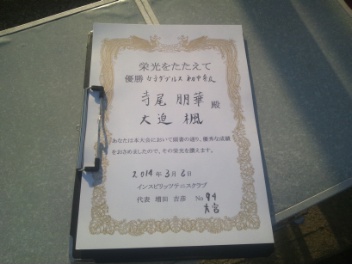 栄光をたたえて
優勝 女子ダブルス
寺尾 朋華 殿
大迫 楓
あなたは本大会において頭書の通り、優秀な成績
をおさめましたので、その栄光を讃えます。
2014年3月6日
インスピリッツテニスクラブ
代表 増田 吉彦 No